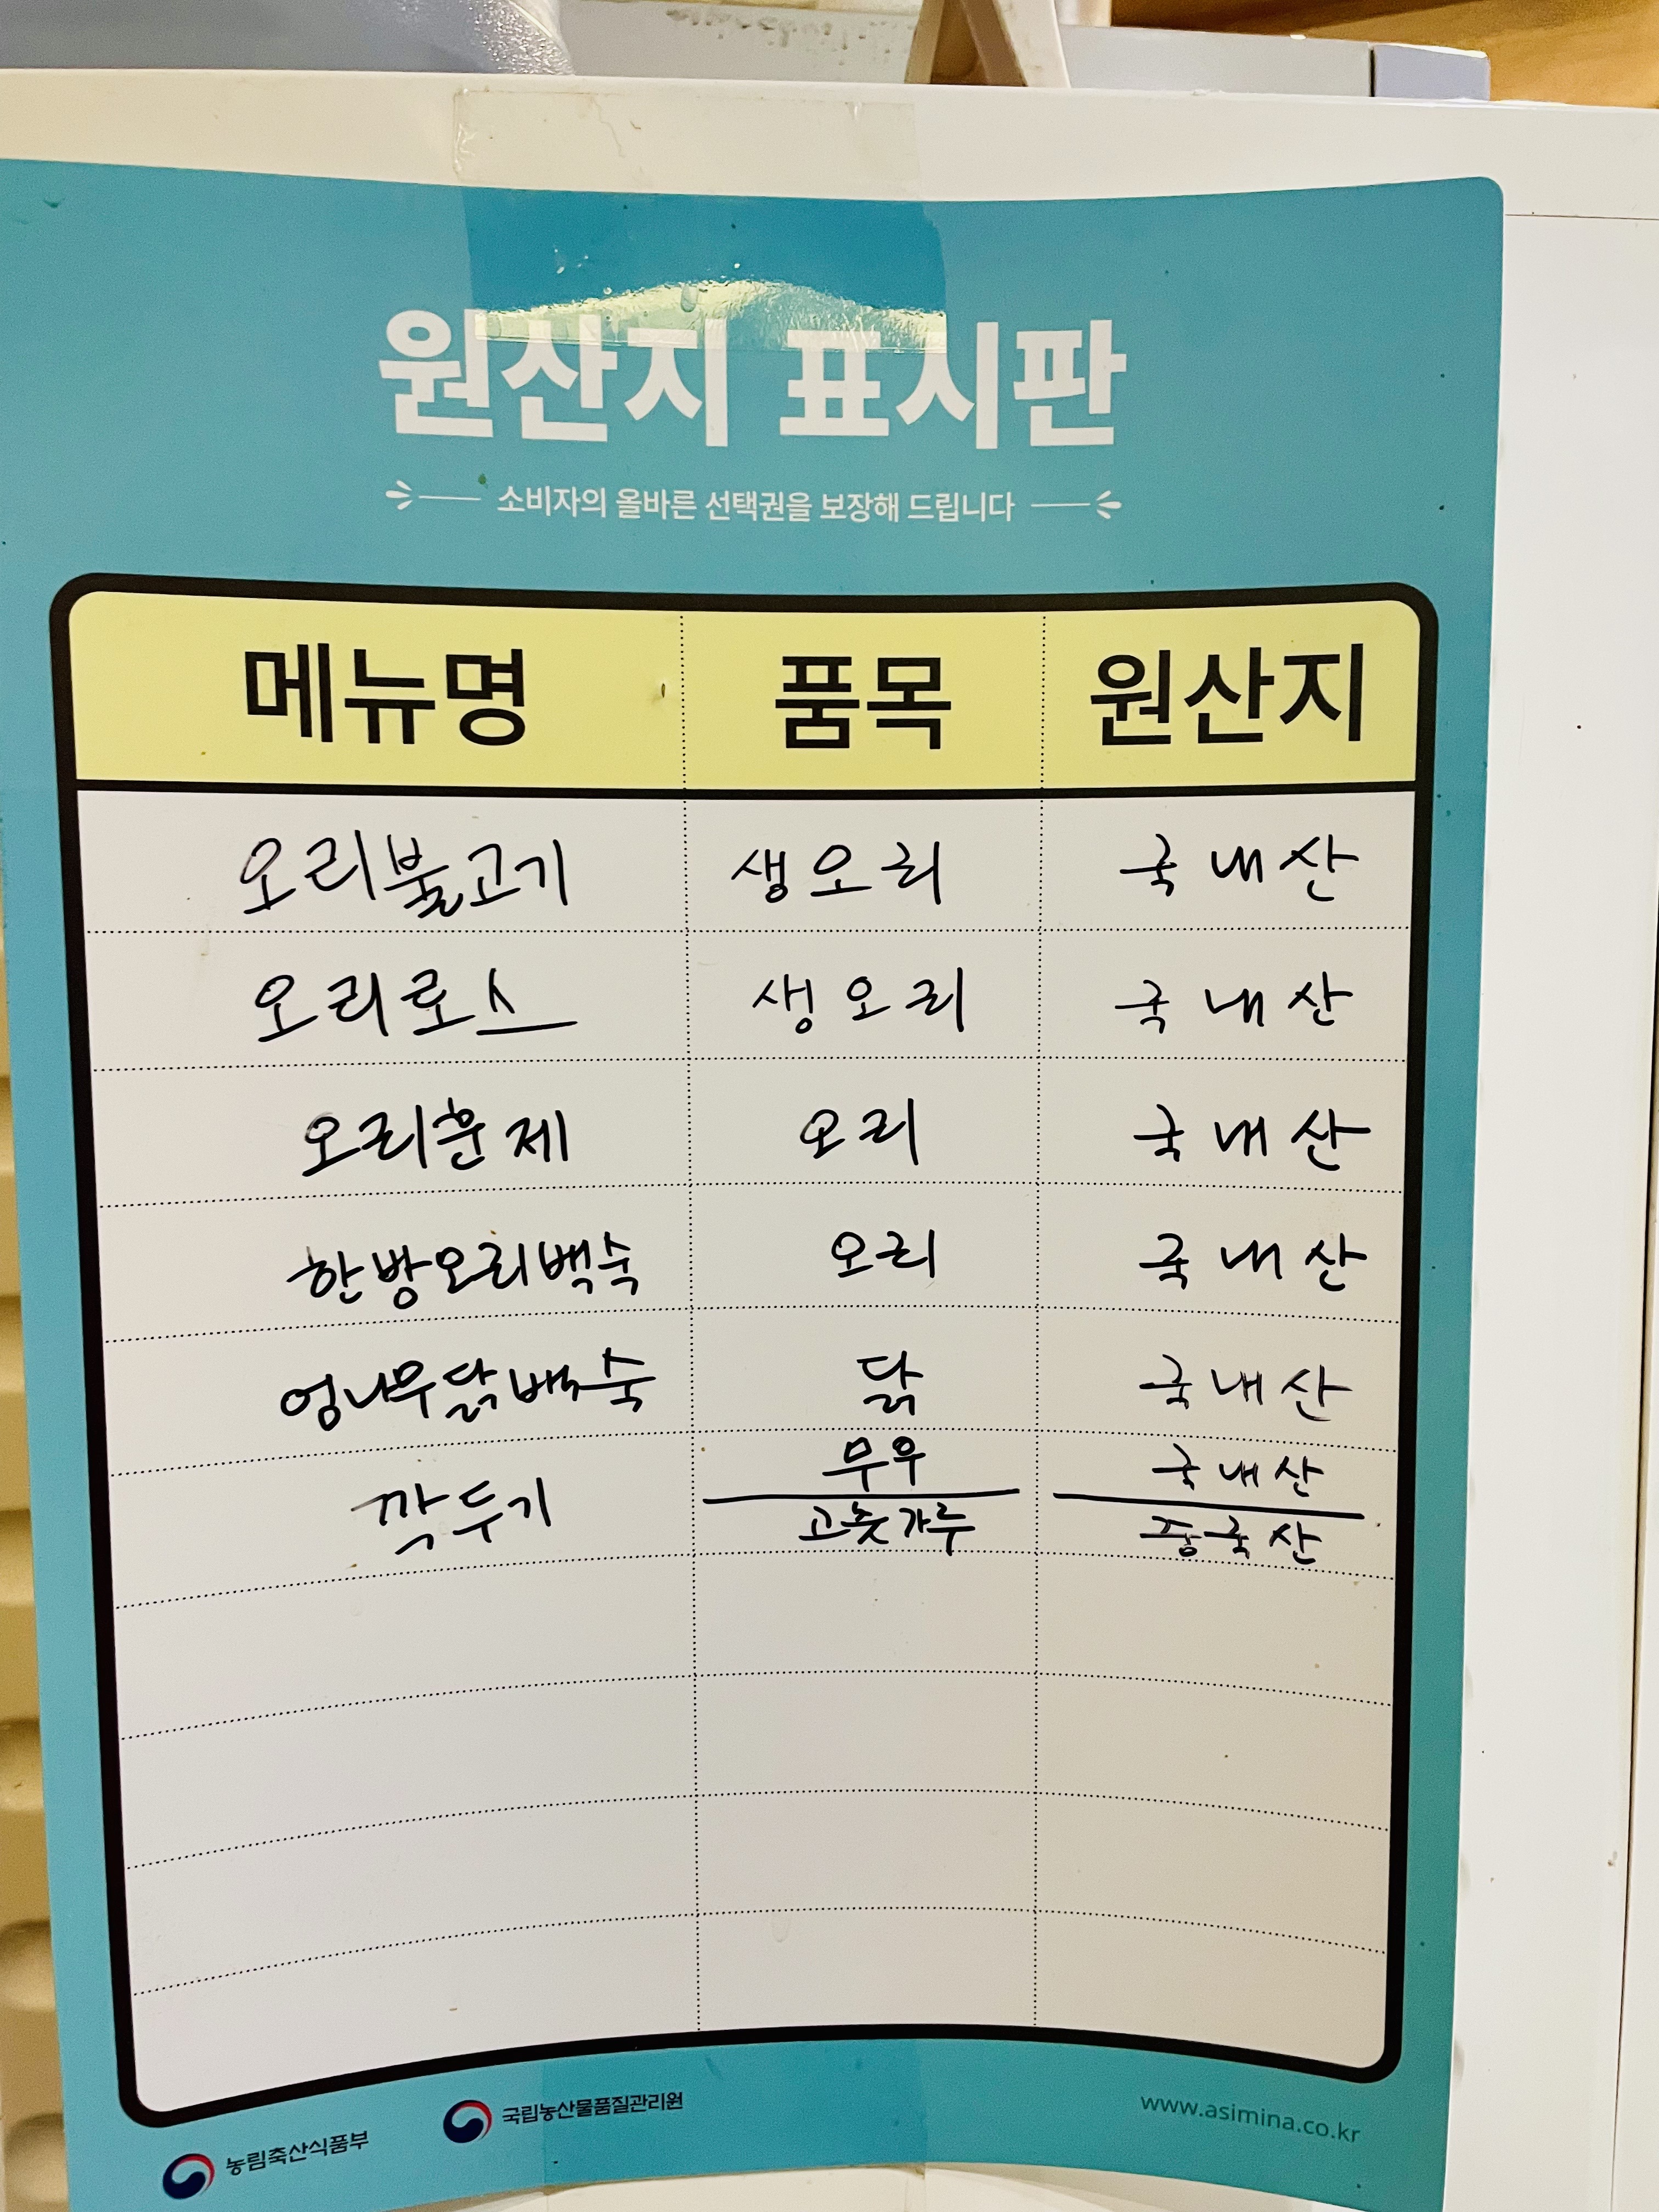 원산지 표시판
소비자의 올바른 선택권을 보장해 드립니다
메뉴명 품목 원산지
오리불고기 생오리 국내산
오리로스 생오리 국내산
오리훈제 오리 국내산
한방오리백숙 오리 국내산
엉나무닭백숙 닭 국내산
깍두기 무우 국내산
고춧가루 중국산
농림축산식품부 국립농산물품질관리원 www.asimina.co.kr